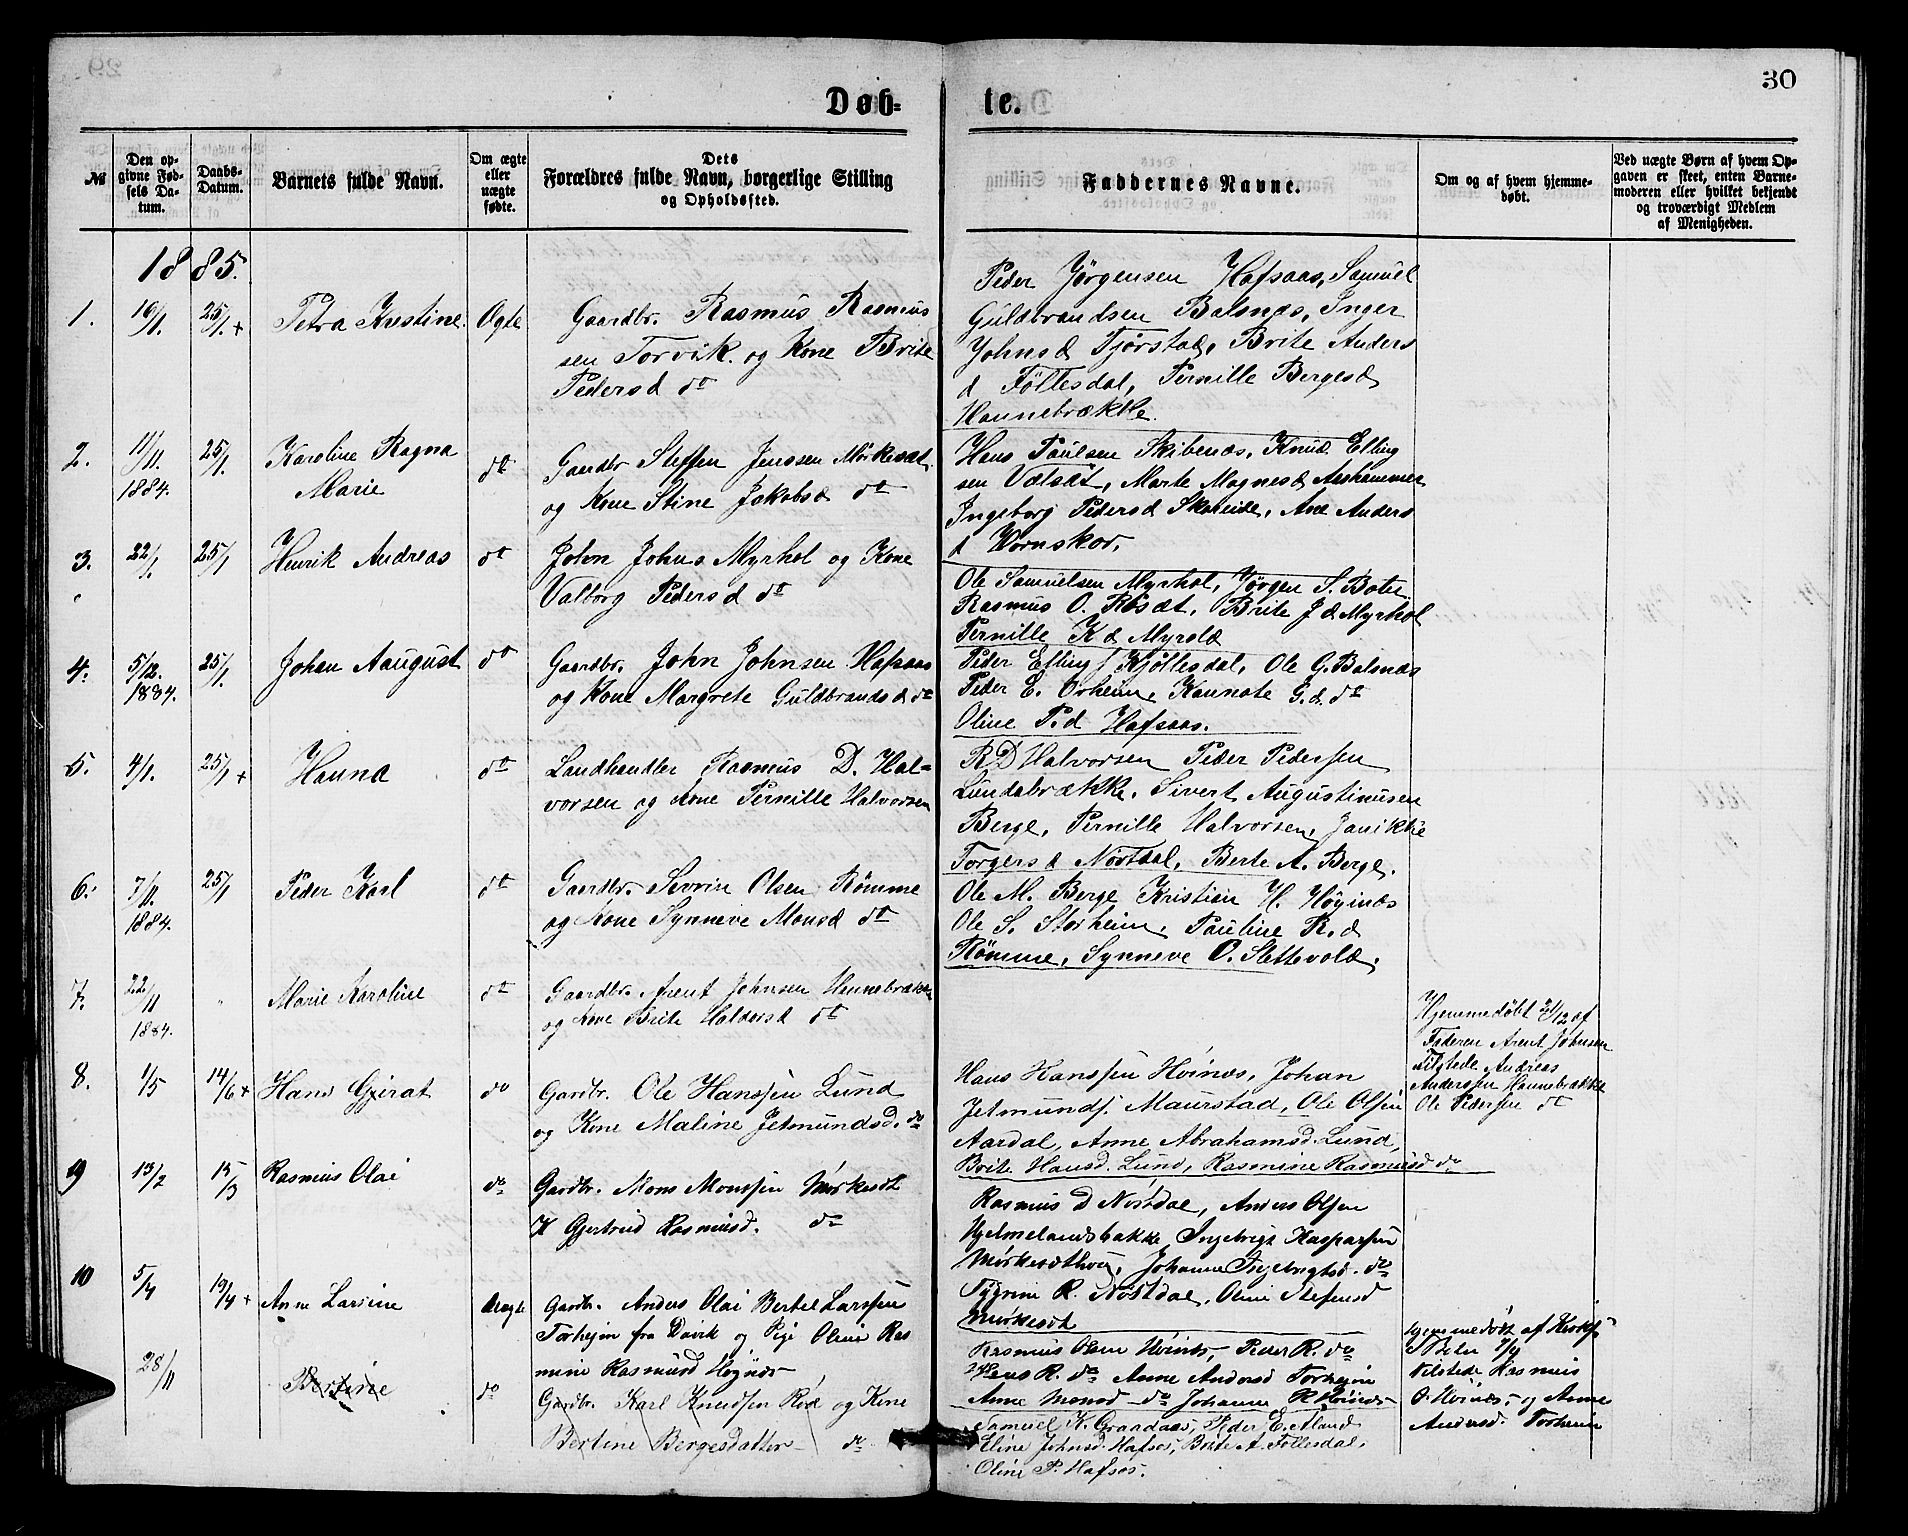 30
Døb-
te.
№
Den op-
givne Fød-
sels Da-
tum.
Daabs-
Datum.
Barnets fulde Navn.
Om ægte
eller
uægte
fødte.
Dets
Forældres fulde Navn, borgerlige Stilling
og Opholdssted.
Faddernes Navne.
Om og af hvem hjemme-
døbt.
Ved uægte Børn af hvem Op-
gaven er skeet, enten Barne-
moderen eller hvilket bekjendt
og troværdigt Medlem
af Menigheden.
1885.
1. 16/1. 25/1 + Petra Kristine. Ægte Gaardbr. Rasmus Rasmus
sen Torvik. og Kone Brite
Pedersd do
Peder Jørgensen Hafsaas, Samuel
Guldbrandsen Balsnæs, Inger
Johnsd Tjørstad, Brite Anders
d Föllesdal, Pernille Bergesd
Hannebrække.
2. 11/11. 1884. 25/1. Karoline Ragna
Marie
do Gaardbr Steffen Jenssen Mörkesæt
og Kone Stine Jakobsd do
Hans Paulsen Skibenæs, Knud Elling
sen Vælsæt, Marte Magnesd Aashammer
Ingeborg Pedersd Skaveide, Ane Anders
d Hornskor.
3. 22/1. 25/1 Henrik Andreas do John Johns Myrhol og Kone
Valborg Pedersd do
Ole Samuelsen Myrhol, Jörgen S. Boten
Rasmus O. Rösæt, Brite J d Myrhol
Pernille K d Myrold
4. 5/12. 1884. 25/1. Johan Aaugust do Gaardbr. John Johnsen Hafsaas
og Kone Margrete Guldbrandsd do
Peder Ellings Kjöllesdal, Ole G. Balsnæs
Peder E. Orheim, Kannate G.d. do
Oline P.d Hafsaas.
5. 4/1. 25/1 + Hanna do Landhandler Rasmus D. Hal=
vorsen og Kone Pernille Halvorsen
R D Halvorsen Peder Pedersen
Lundebrække, Sivert Augustinusen
Berge, Pernille Halvorsen, Janikke
Torgersd Nöstdal, Berte A. Berge.
6. 7/11. 1884. 25/1 Peder Karl do Gaardbr. Severin Olsen Römme
og Kone Synneve Monsd do
Ole M. Berge Kristian H. Höginæs
Ole S. Storheim, Pauline R.d
Römme, Synneve O. Slettevold.
7. 22/11 1884. " Marie Karoline do Gaardbr. Arent Johnsen Hannebrække
og Kone Brite Haldorsd do
Hjemmedöbt 21/12 af
Faderen Arent Johnsen
Tilstede Andreas
Anderssen Hannebrække
Ole Pedersen do
8. 1/5 14/6 + Hans Gjerat do Gardbr. Ole Hanssen Lund
og Kone Maline Jetmundsd. do
Hans Hanssen Höinæs, Johan
Jetmunds. Maurstad, Ole Olsen
Aardal, Anne Abrahamsd. Lund,
Brite Hansd. Lund, Rasmine Rasmusd do
9 13/2 15/3 Rasmus Olai do Gardbr. Mons Monssen Mörkesæt
K Gjertrud Rasmusd. do
Rasmus D Nöstdal, Anders Olsen
Hjelmelandsbakke Ingebrigt Kasparsen
Mörkesæt, Johanne Ingebrigtsd. do
R. Nöstdal, Oline Stefensd
Mörkesæt
10 5/4 19/4 + Anne Larsine Uægte Gardbr. Anders Olai Bertel Larssen
Torheim fra Davik og Pige Oline Ras
mine Rasmusd Högnæs
Rasmus Höinæs, Peder R. do
R. do Anne Andersd Torheim
Anne Monsd do Johanne R Höinæs
Hjemmedöbt af Kirkes
7/4
Tilstede Rasmus
O. Höinæs, og Anne
Andersd. Torheim
28/11 Bertine do Gardbr. Karl Knudsen Röd og Kone
Bertine Bergesdatter do
Samuel K. Graadaas, Peder E. Aland
Eline Johnsd. Hafsos, Brite A. Follesdal,
Oline P. Hafsos.